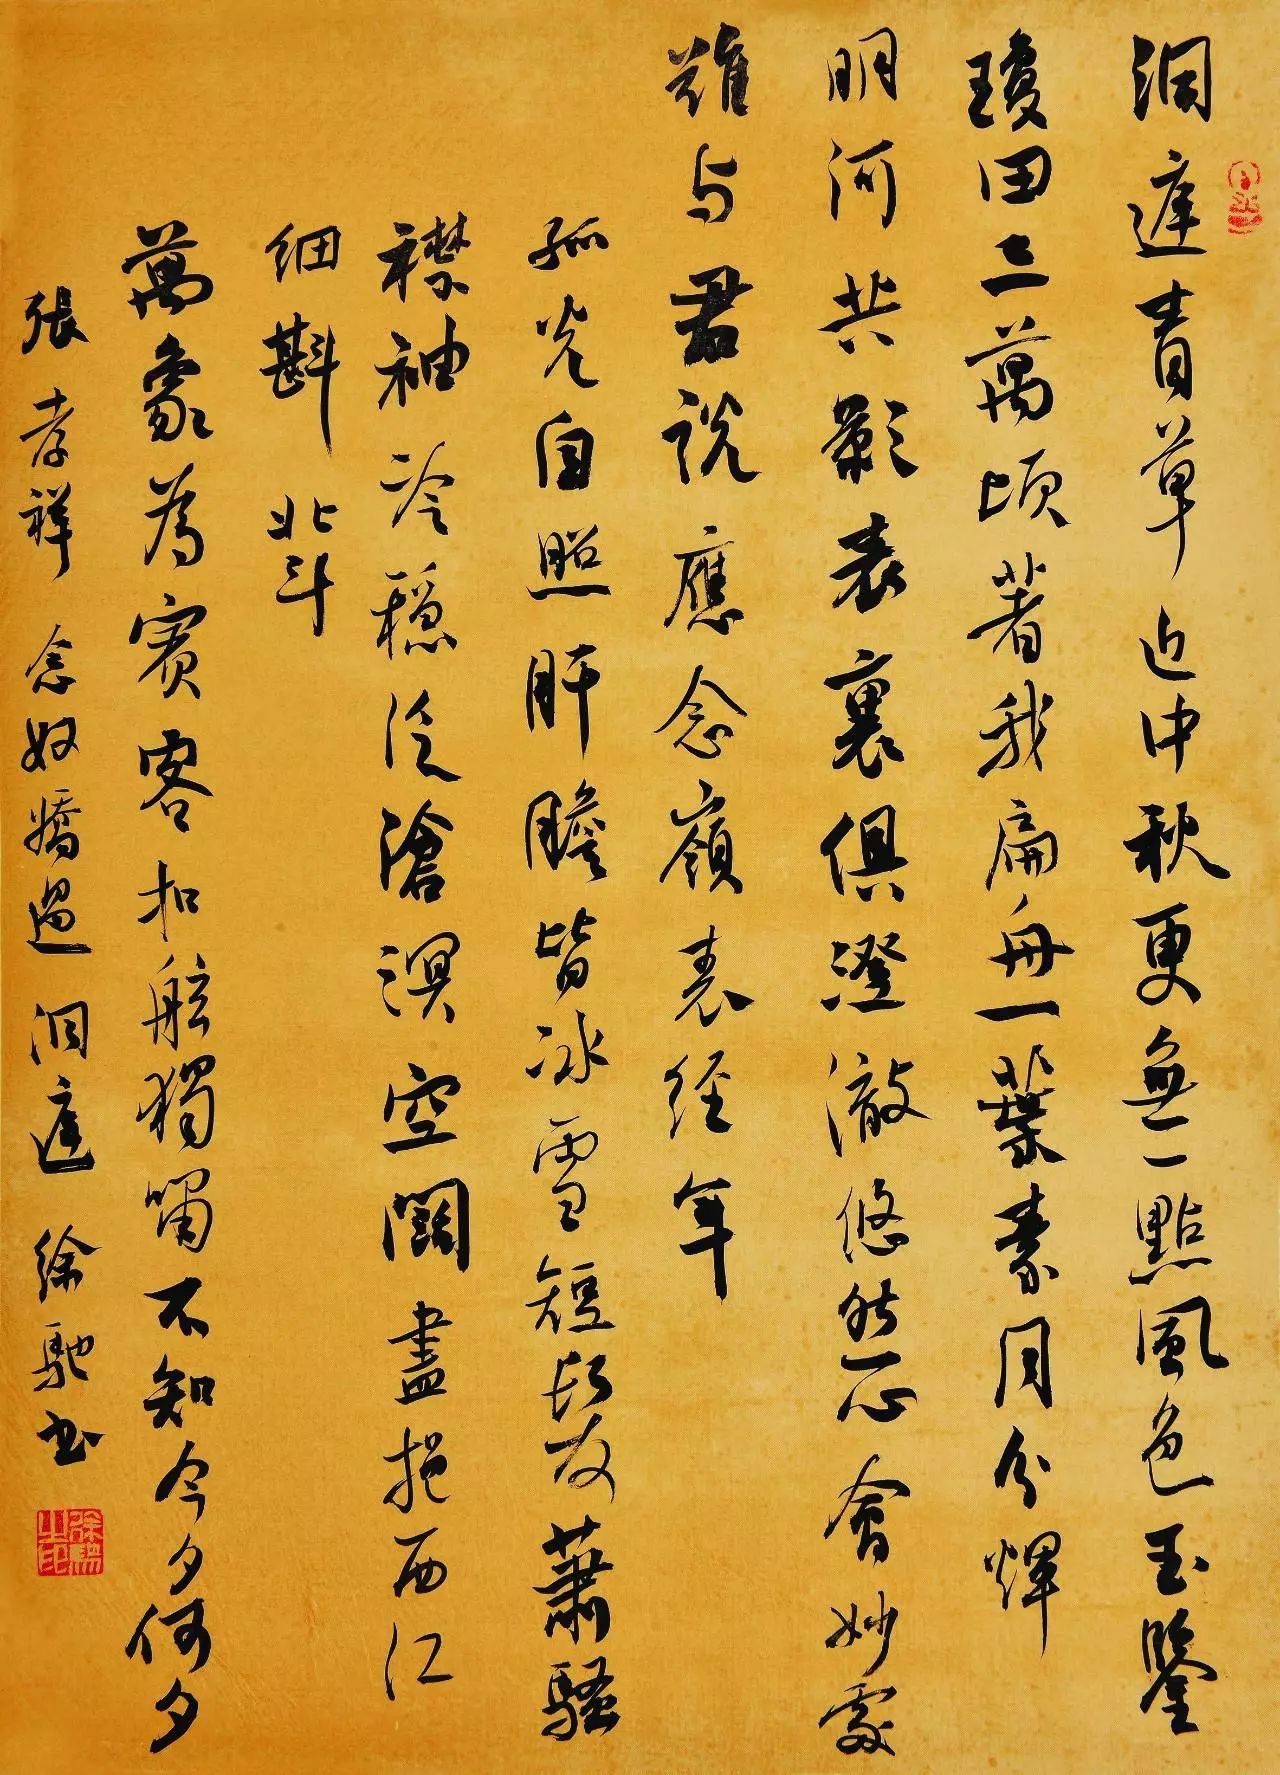 洞庭青草近中秋更無一點風色玉鑒
瓊田三萬頃著我扁舟一葉素月分輝
明河共影表裏俱澄澈悠然心會妙處
難与君説應念嶺表經年
孤光自照肝膽皆冰雪短髮蕭騷
襟袖冷穩泛滄溟空闊盡挹西江
細斟北斗
萬象為賓客扣舷獨嘯不知今夕何夕
張孝祥念奴嬌過洞庭徐馳書
徐馳之印